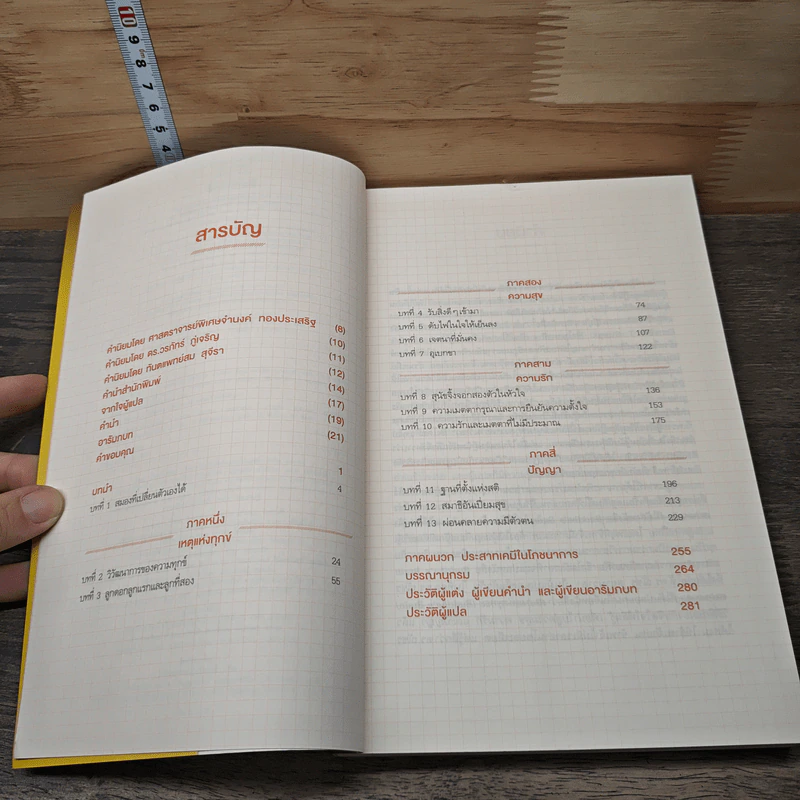 10
9
8
7
6
5
4
สารบัญ
คำนิยมโดย ศาสตราจารย์พิเศษจำนงค์ ทองประเสริฐ (8)
คำนิยมโดย ดร.วรภัทร์ ภู่เจริญ (10)
คำนิยมโดย ทันตแพทย์สม สุจีรา (11)
คำนำสำนักพิมพ์ (12)
จากใจผู้แปล (14)
คำนำ (17)
อารัมภบท (19)
คำขอบคุณ (21)
บทนำ 1
บทที่ 1 สมองที่เปลี่ยนตัวเองได้ 4
ภาคหนึ่ง
เหตุแห่งทุกข์
บทที่ 2 วิวัฒนาการของความทุกข์ 24
บทที่ 3 ลูกดอกลูกแรกและลูกที่สอง 55
ภาคสอง
ความสุข
บทที่ 4 รับสิ่งดีๆ เข้ามา 74
บทที่ 5 ดับไฟในใจให้เย็นลง 87
บทที่ 6 เจตนาที่มั่นคง 107
บทที่ 7 อุเบกขา 122
ภาคสาม
ความรัก
บทที่ 8 สุนัขจิ้งจอกสองตัวในหัวใจ 136
บทที่ 9 ความเมตตากรุณาและการยืนยันความตั้งใจ 153
บทที่ 10 ความรักและเมตตาที่ไม่มีประมาณ 175
ภาคสี่
ปัญญา
บทที่ 11 ฐานที่ตั้งแห่งสติ 196
บทที่ 12 สมาธิอันเปี่ยมสุข 213
บทที่ 13 ผ่อนคลายความมีตัวตน 229
ภาคผนวก ประสาทเคมีในโภชนาการ 255
บรรณานุกรม 264
ประวัติผู้แต่ง ผู้เขียนคำนำ และผู้เขียนอารัมภบท 280
ประวัติผู้แปล 281